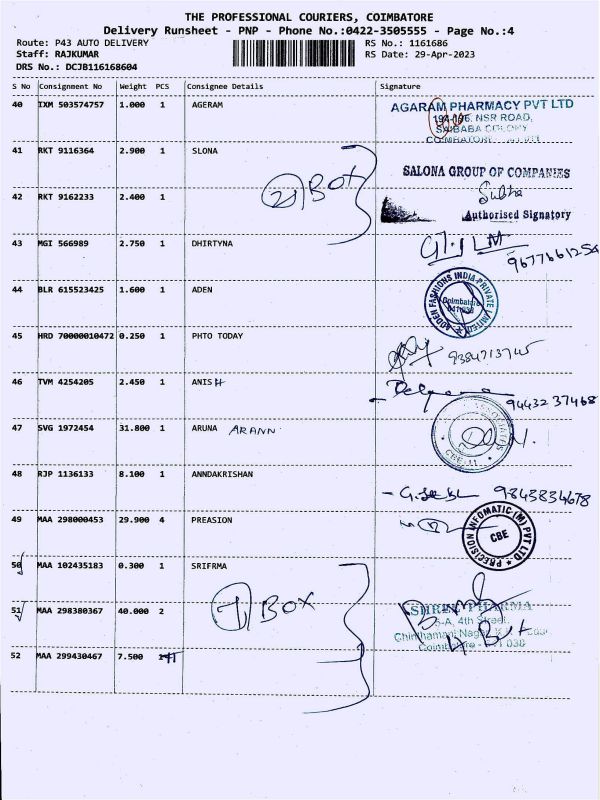 THE PROFESSIONAL COURIERS, COIMBATORE
Delivery Runsheet - PNP - Phone No.:0422-3505555 - Page No.:4
Route: P43 AUTO DELIVERY RS No.: 1161686
Staff: RAJKUMAR RS Date: 29-Apr-2023
DRS No.: DCJB116168604
S No Consignment No Weight PCS Consignee Details Signature
40 IXM 503574757 1.000 1 AGERAM
AGARAM PHARMACY PVT LTD
NSR ROAD,
SAIBABA COLONY
41 RKT 9116364 2.900 1 SLONA
SALONA GROUP OF COMPANIES
BOX
42 RKT 9162233 2.400 1
Authorised Signatory
43 MGI 566989 2.750 1 DHIRTYNA
44 BLR 615523425 1.600 1 ADEN
ADDEN FASHIONS INDIA PRIVATE LIMITED
Coimbatore
45 HRD 70000010472 0.250 1 PHTO TODAY
9384713745
46 TVM 4254205 2.450 1 ANISH
9443237468
47 SVG 1972454 31.800 1 ARUNA ARANN
48 RJP 1136133 8.100 1 ANNDAKRISHAN
9843834678
49 MAA 298000453 29.900 4 PREASION
PRECISION INFOMATIC (M) PVT LTD
CBE
50 MAA 102435183 0.300 1 SRIFRMA
51 MAA 298380367 40.000 2
BOX
SHREE PHARMA
5-A, 4th Street,
52 MAA 299430467 7.500